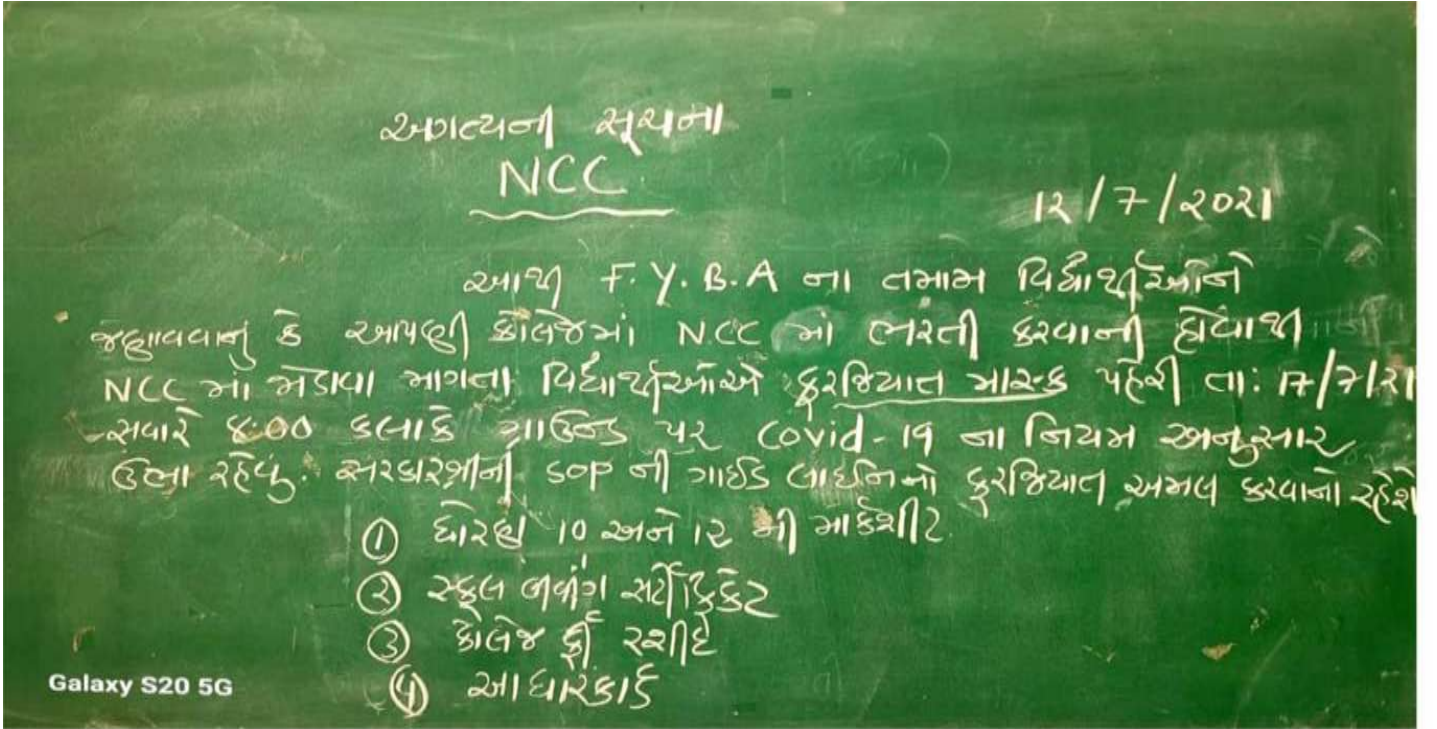 અગત્યની સૂચના
NCC
૧૨/૭/૨૦૨૧
આથી F.Y.B.A ના તમામ વિદ્યાર્થીઓને
જણાવવાનું કે આપણી કોલેજમાં NCC માં ભરતી કરવાની હોવાથી
NCC માં જોડાવા માગતા વિદ્યાર્થીઓએ ફરજિયાત માસ્ક પહેરી તા: ૧૭/૭/૨૧
સવારે ૮:૦૦ કલાકે ગ્રાઉન્ડ પર Covid-19 ના નિયમ અનુસાર
ઉભા રહેવું. સરકારશ્રીની SOP ની ગાઈડ લાઈનનો ફરજિયાત અમલ કરવાનો રહેશે
① ધોરણ ૧૦ અને ૧૨ ની માર્કશીટ
② સ્કૂલ લીવીંગ સર્ટીફિકેટ
③ કોલેજ ફી રશીદ
④ આધારકાર્ડ
Galaxy S20 5G